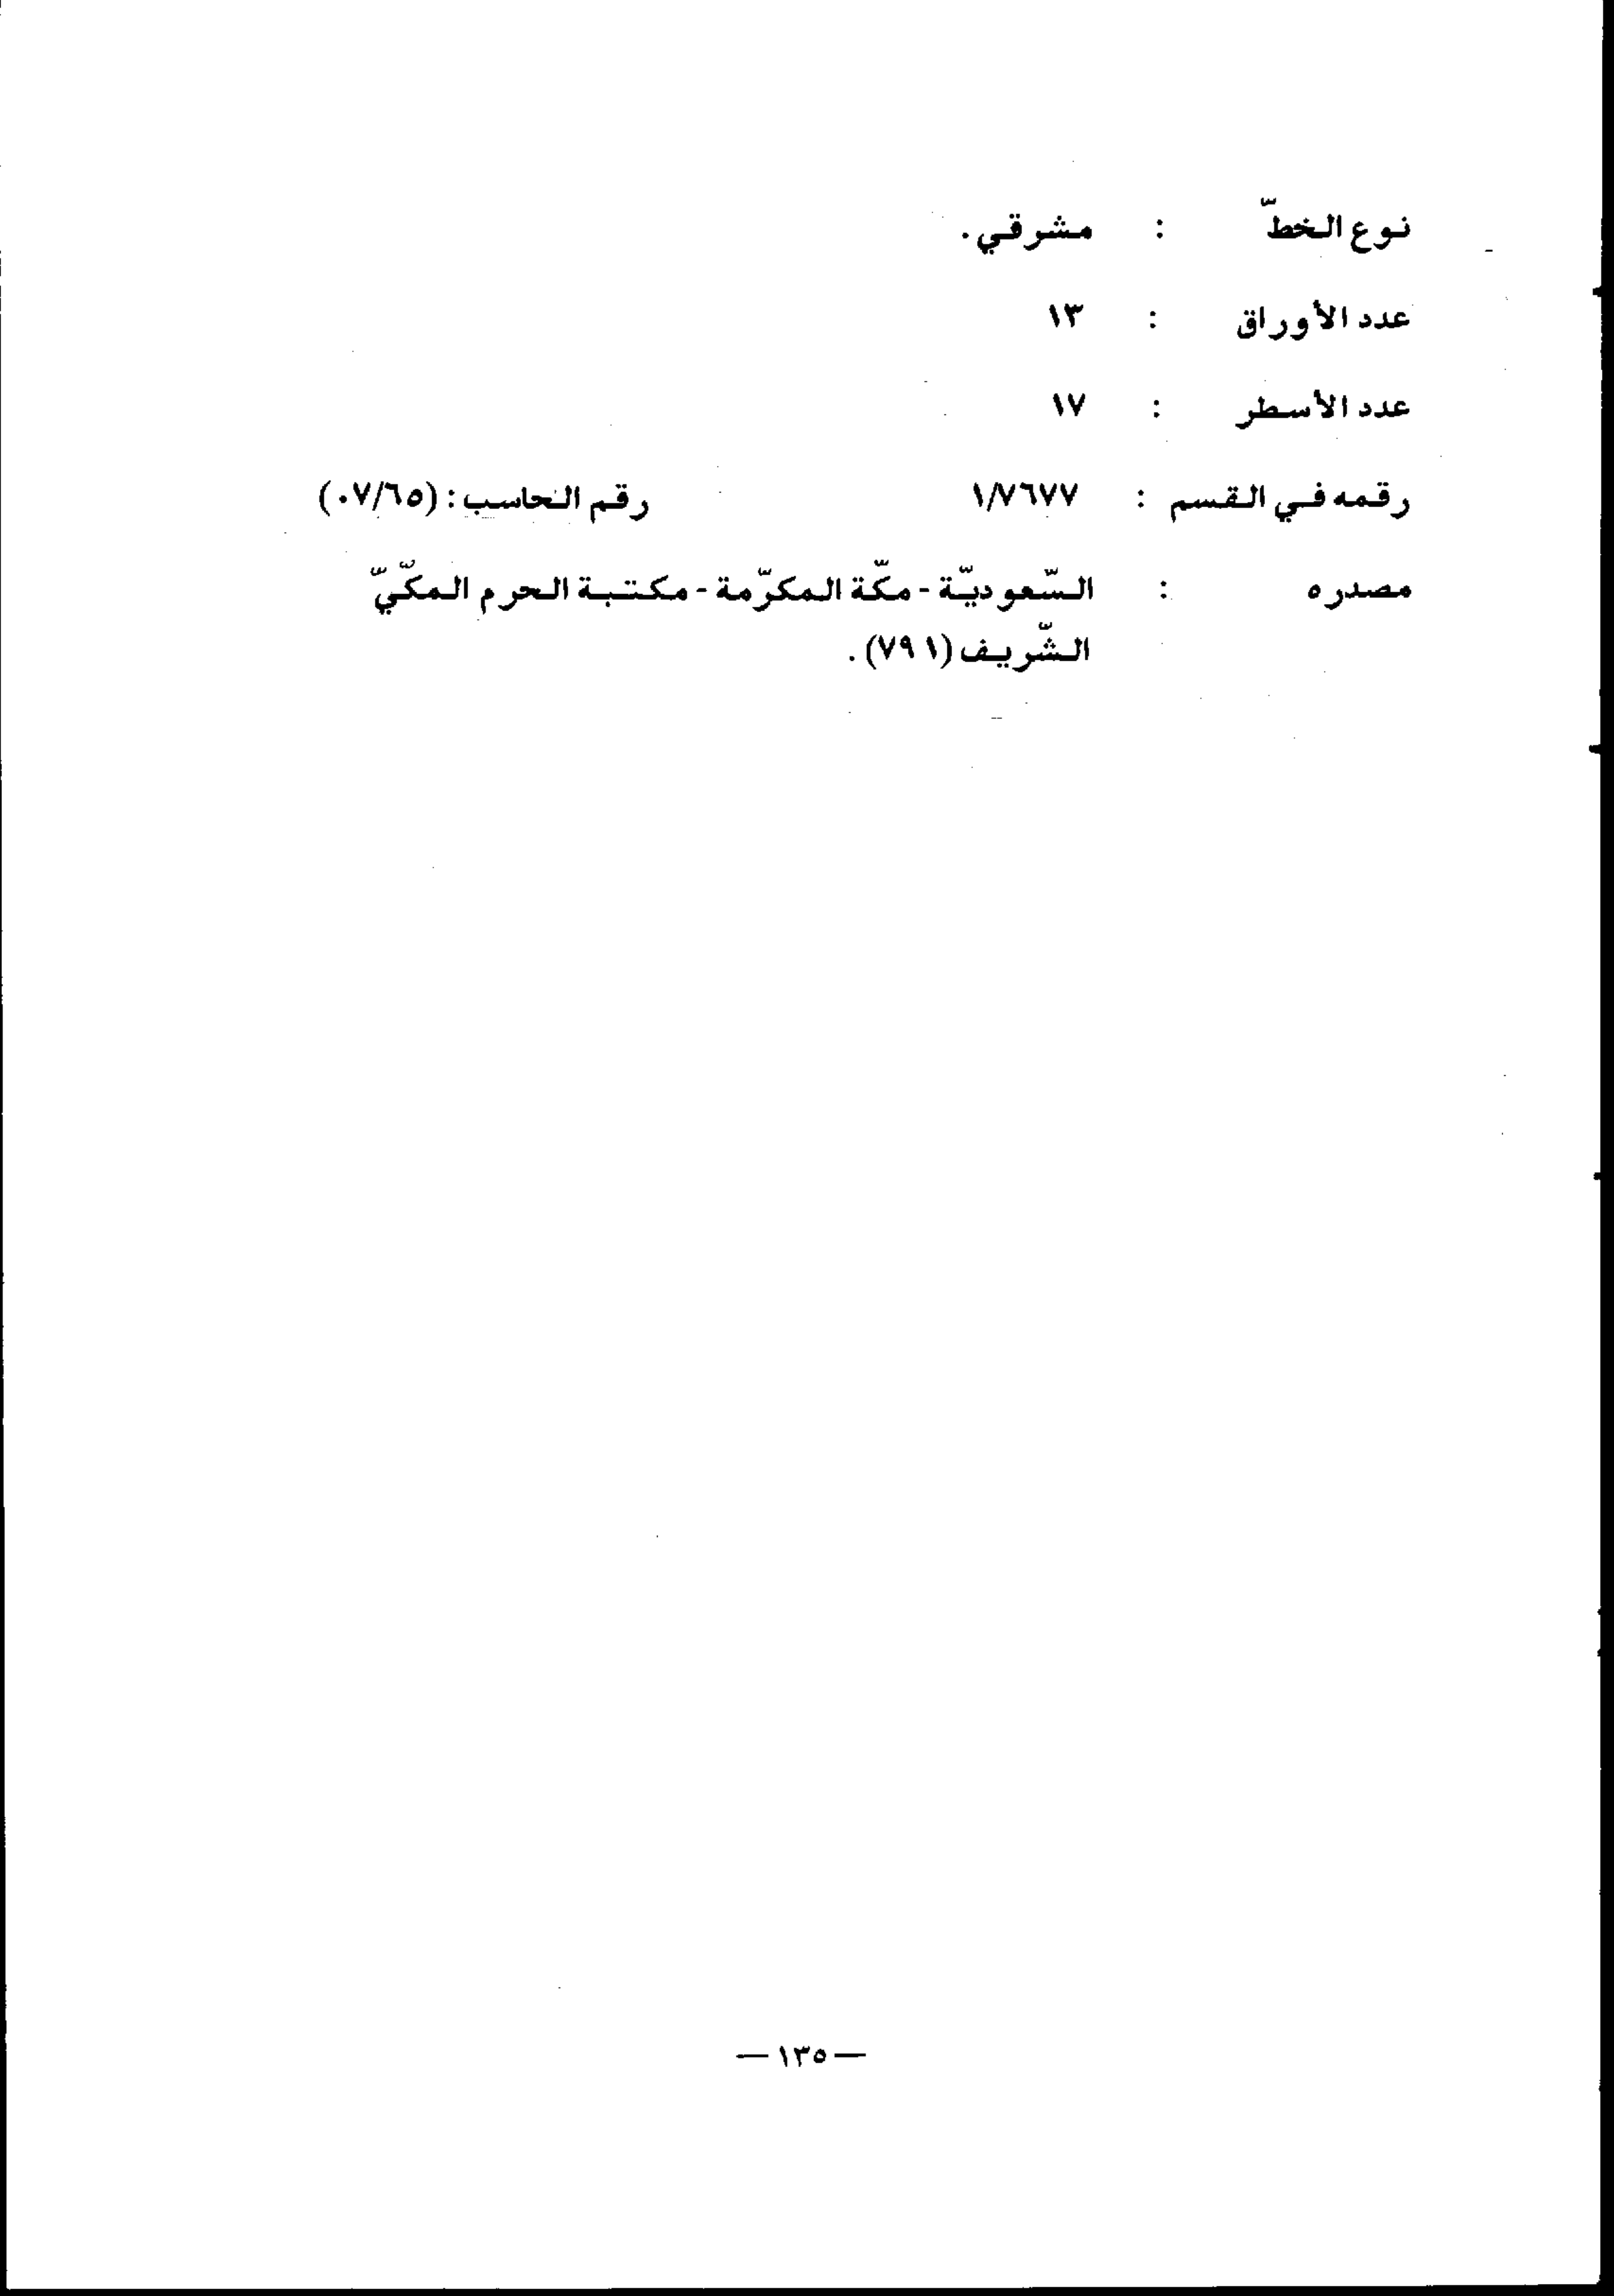 نوع الخطّ : مشرقي.
عدد الأوراق : ١٣
عدد الأسطر : ١٧
رقمه في القسم : ١/٧٦٧٧ رقم الحاسب: (٠٧/٦٥)
مصدره : السّعوديّة - مكّة المكرّمة - مكتبة الحرم المكّيّ
الشّريف (٧٩١).
— ١٣٥ —